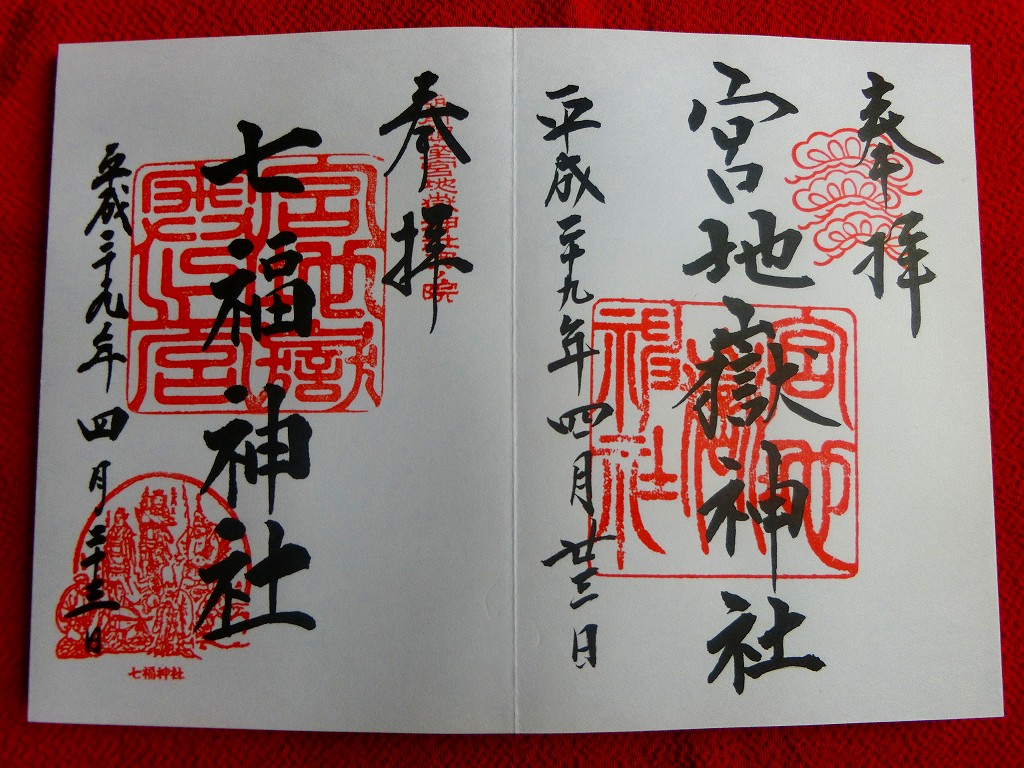 奉拝
宮地嶽神社
平成二十九年四月廿三日
宮地
嶽
神社
奉拝
七福神社
平成二十九年四月二十三日
宮地嶽
七福神社